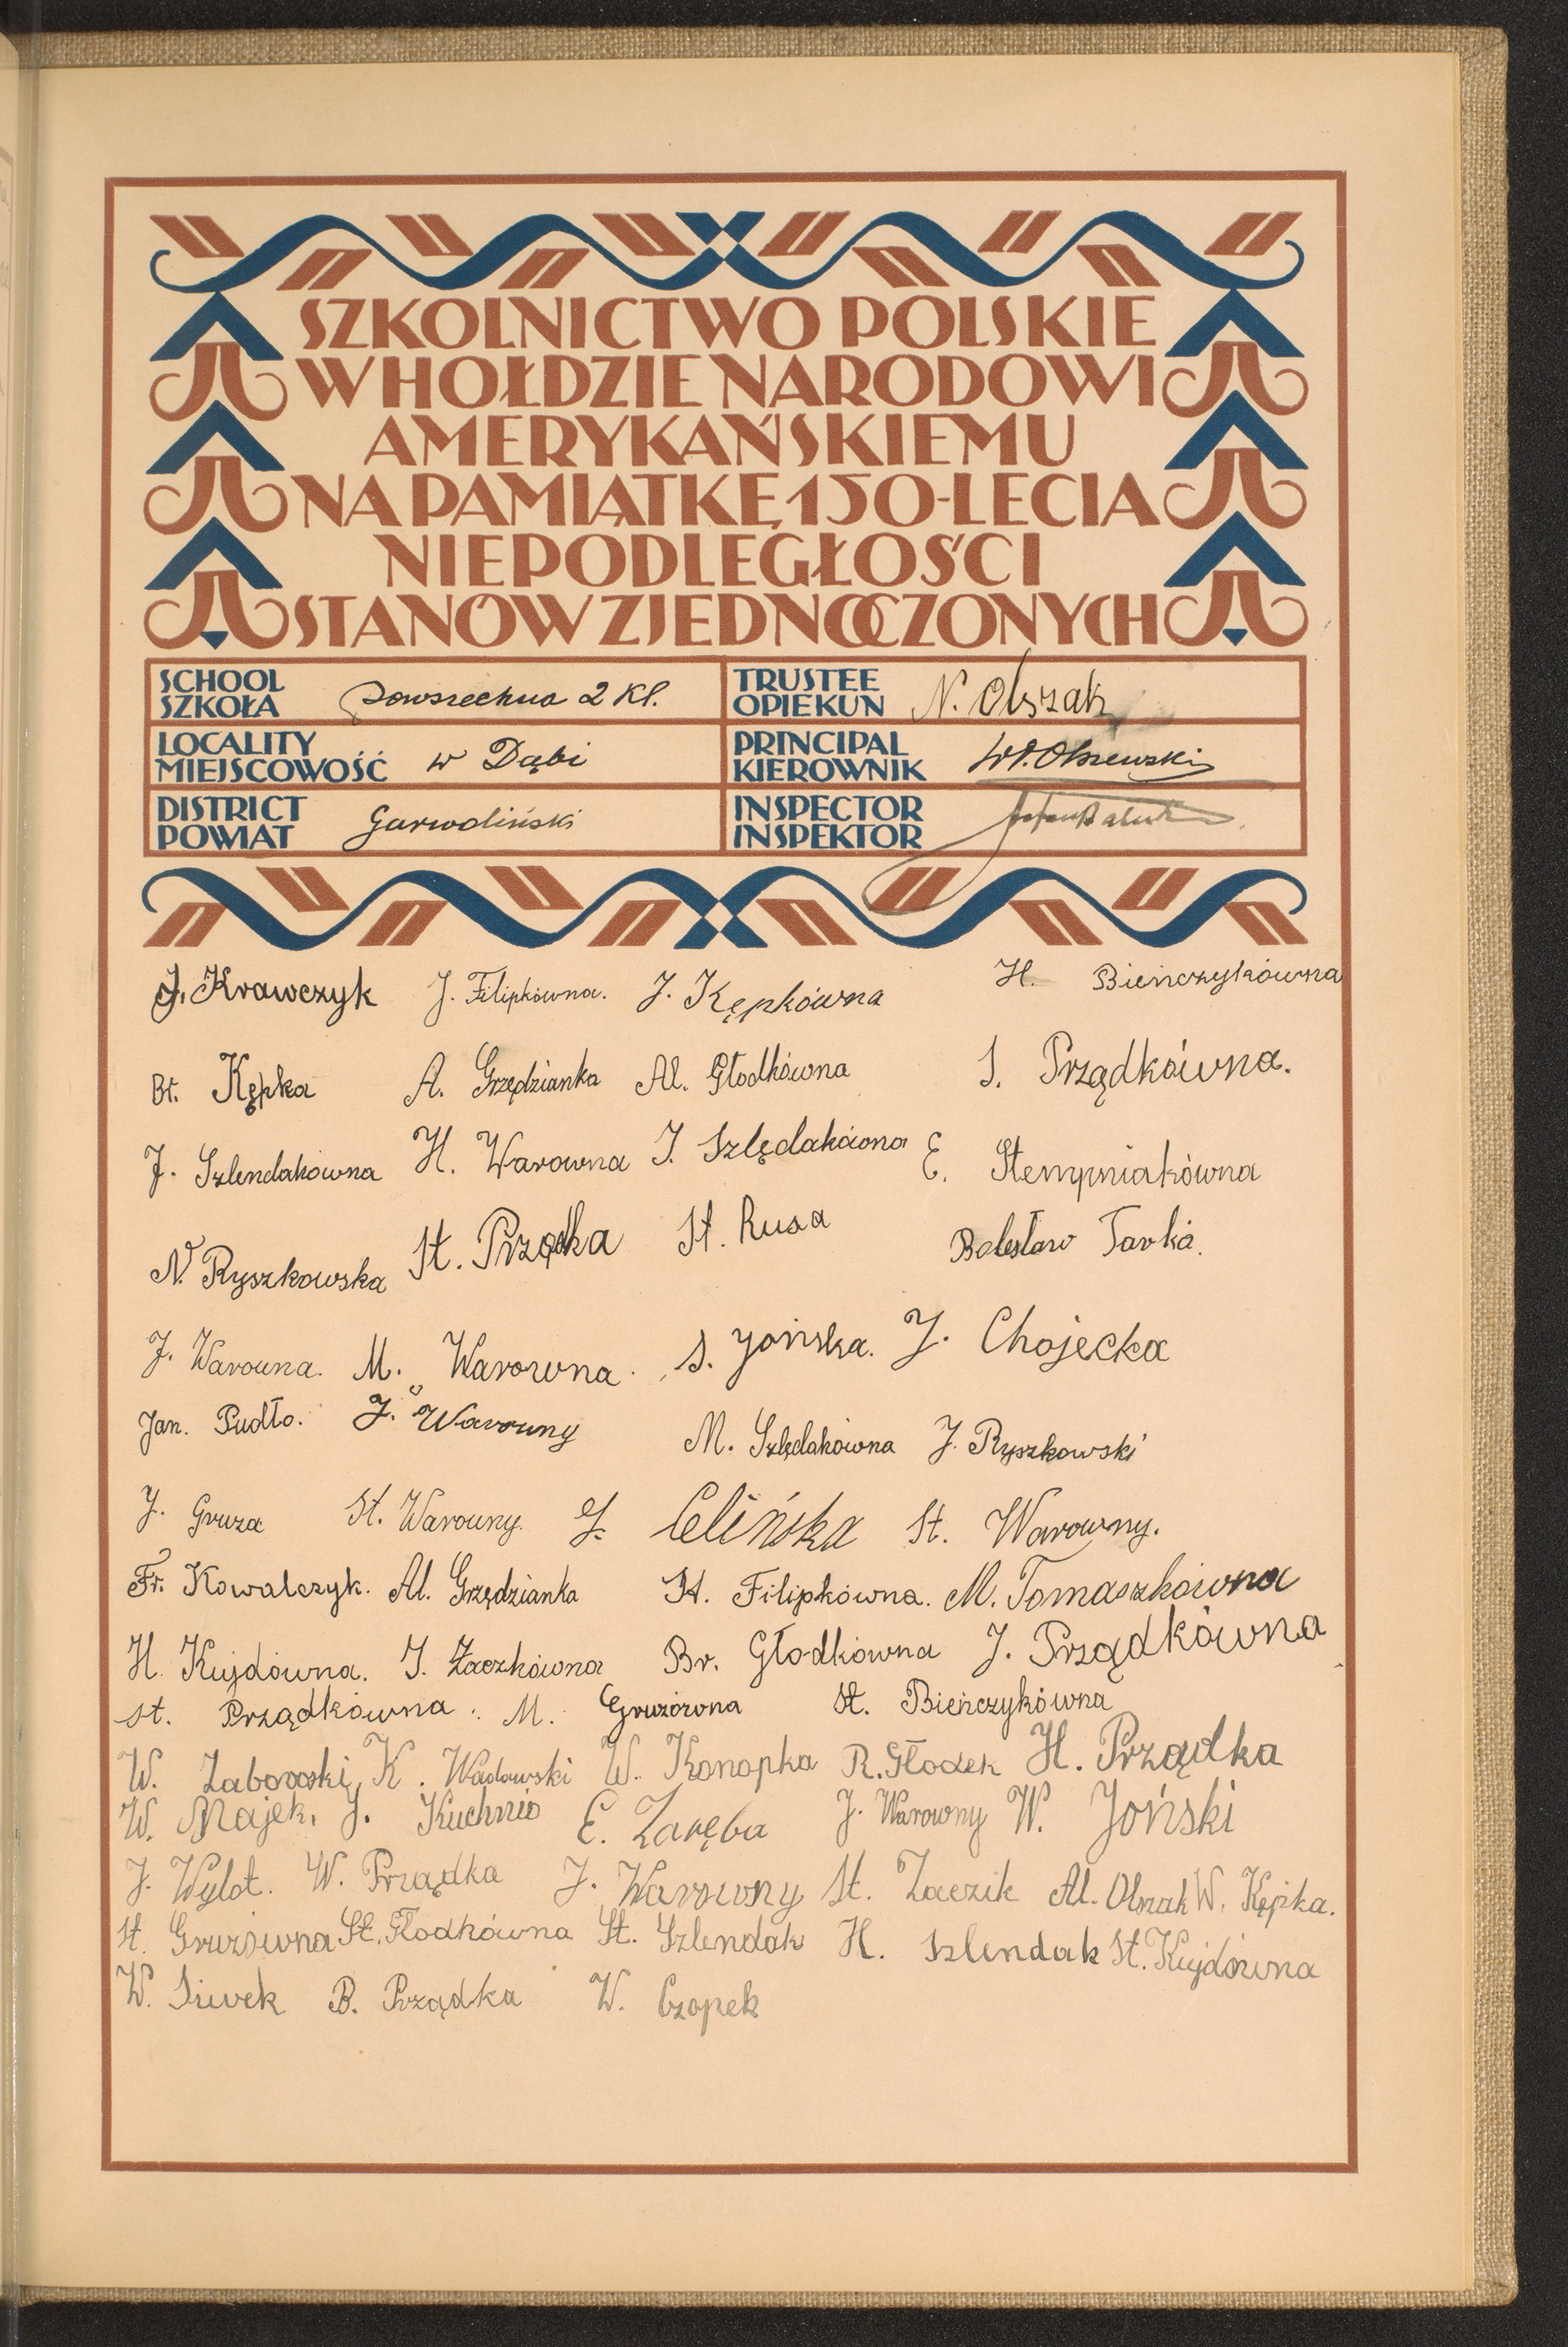 SZKOLNICTWO POLSKIE
W HOŁDZIE NARODOWI
AMERYKAŃSKIEMU
NA PAMIĄTKĘ 150-LECIA
NIEPODLEGŁOŚCI
STANÓW ZJEDNOCZONYCH
SCHOOL
SZKOŁA powszechna 2 kl.
TRUSTEE
OPIEKUN N. Olszak
LOCALITY
MIEJSCOWOŚĆ w Dąbi
PRINCIPAL
KIEROWNIK Wł. Olszewski
DISTRICT
POWIAT Garwoliński
INSPECTOR
INSPEKTOR
J. Krawczyk J. Filipkówna. J. Kępkówna H. Bieńczykówna
Br. Kępka A. Grzędzianka Al. Głodkówna S. Prządkówna.
J. Szlendakówna H. Warowna J. Szlędakówna E. Stempniakówna
N. Ryszkowska St. Prządka St. Rusa Bolesław Tarka.
J. Warowna. M. Warowna. S. Jońska. J. Chojecka
Jan. Pudło. J. Warowny M. Szlędakówna J. Ryszkowski
J. Gruza St. Warowny. J. Celińska St. Warowny.
Fr. Kowalczyk. Al. Grzędzianka St. Filipkówna. M. Tomaszkówna
H. Kujdówna. J. Zaczkówna Br. Głodkówna J. Prządkówna
St. Prządkówna. M. Gruzówna St. Bieńczykówna
W. Zaboroski, K. Wadowski W. Konopka R. Głodek H. Prządka
W. Majek, J. Kuchnio E. Zaręba J. Warowny W. Joński
J. Wylot. W. Prządka J. Warowny St. Zaczik Al. Olszak W. Kępka.
St. Gruzówna St. Głodkówna St. Szlendak H. Szlendak St. Kujdówna
W. Siwek B. Prządka W. Czopek